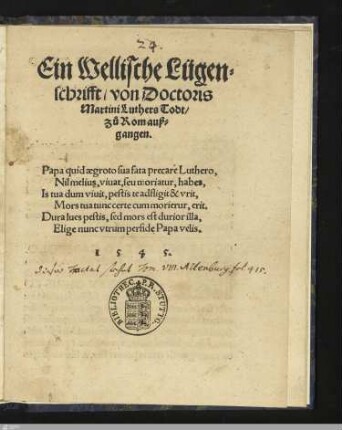 24.
Ein Wellische Lügen-
schrifft/ von Doctoris
Martini Luthers Todt/
zů Rom auß-
gangen.
Papa quid ægroto sua fata precare Luthero,
Nil melius, viuat, seu moriatur, habes,
Is tua dum viuit, pestis te adfligit & vrit,
Mors tua tunc certe cum morietur, erit.
Dura lues pestis, sed mors est durior illa,
Elige nunc vtrum perfide Papa velis.
1 5 4 5.
dieser Tractat stehet Tom. VIII. Altenburg fol. 415.
BIBLIOTHEC. P. R. STUTTG.